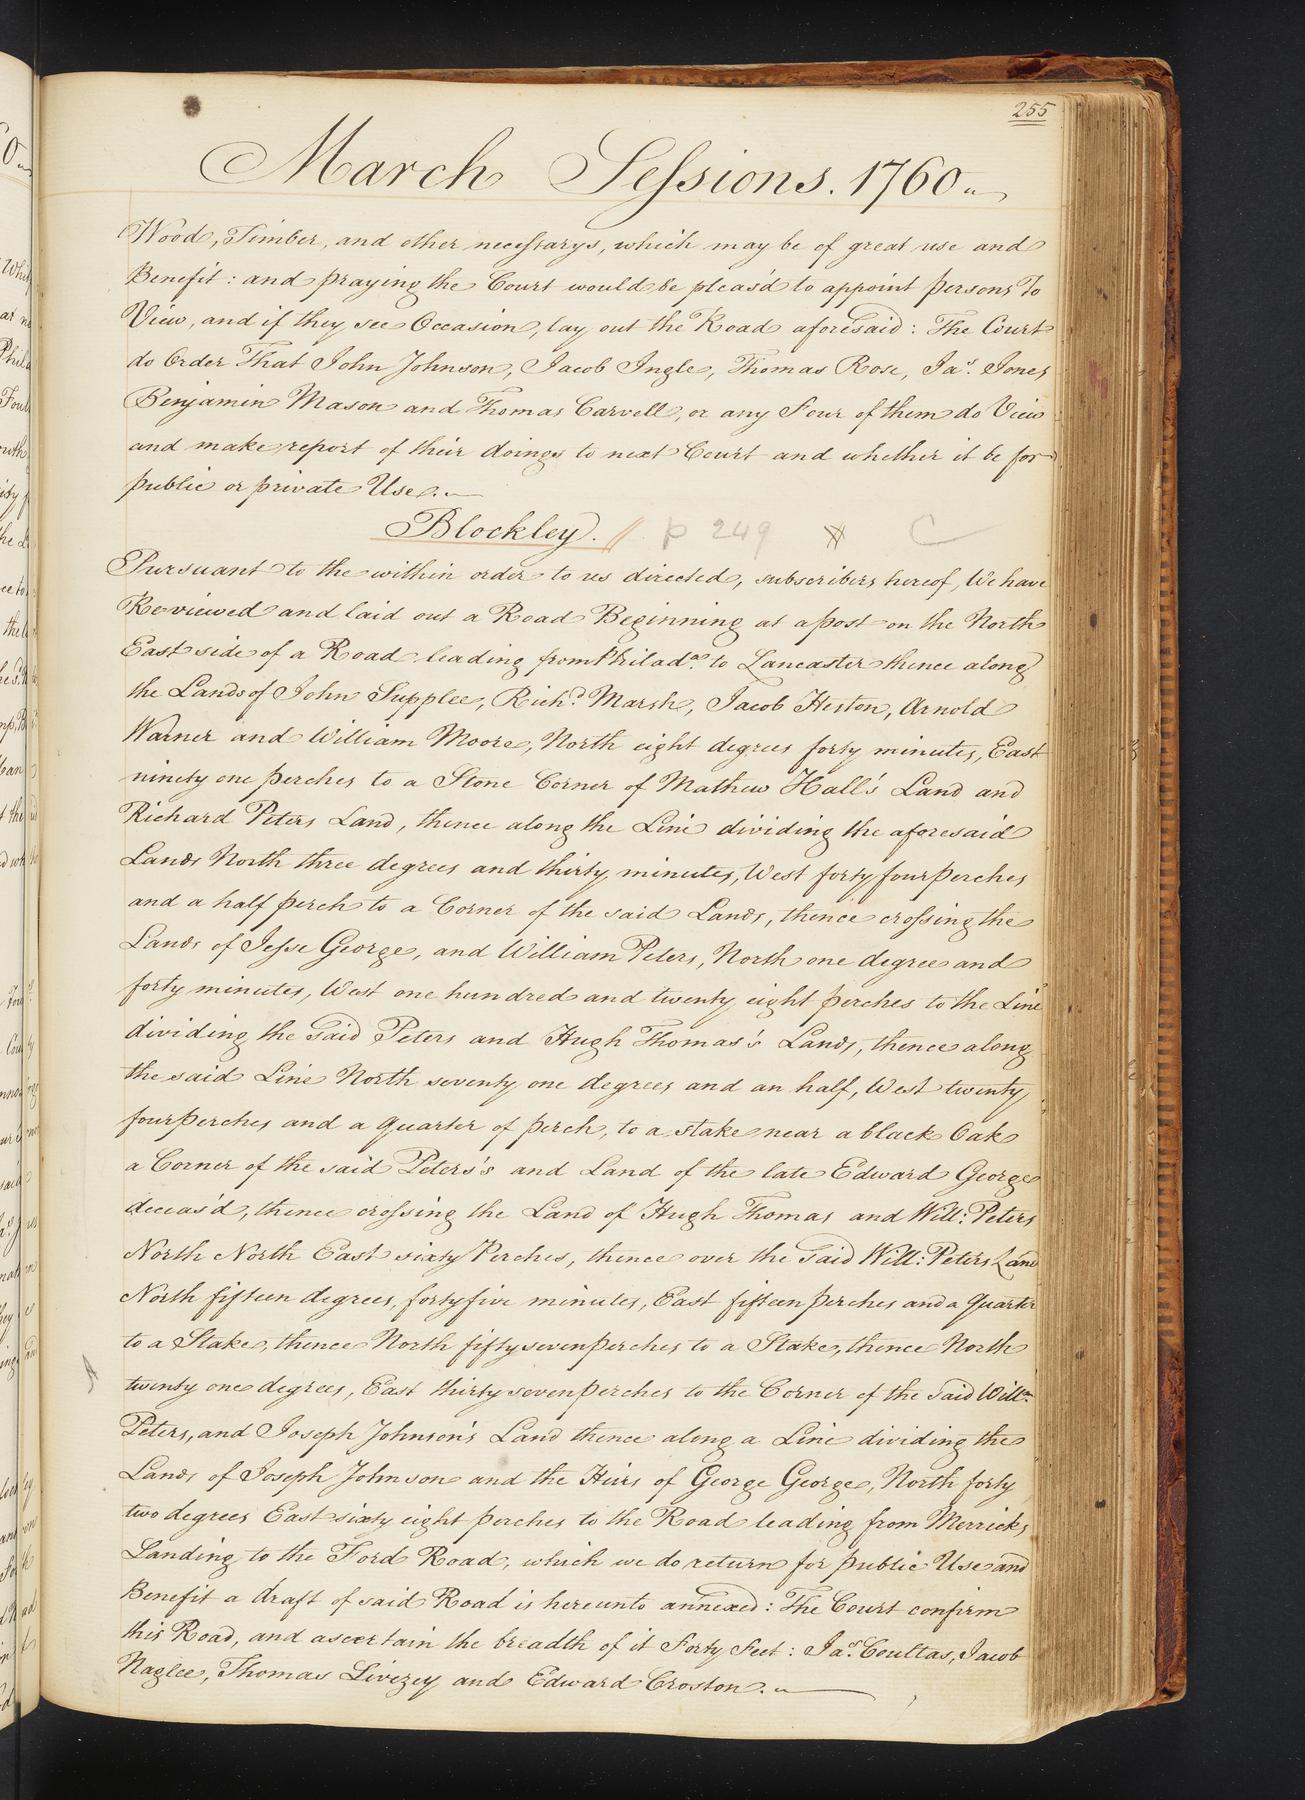 255
March Sessions. 1760
Wood, Timber, and other necessarys, which may be of great use and
Benefit: and praying the Court would be pleas'd to appoint persons To
View, and if they see Occasion, lay out the Road aforesaid: The Court
do Order That John Johnson, Jacob Ingle, Thomas Rose, Jas. Jones
Benjamin Mason and Thomas Carvell, or any Four of them do View
and make report of their doings to next Court and whether it be for
public or private Use.
Blockley. // p 249 C
Pursuant to the within order to us directed, subscribers hereof, We have
Re-viewed and laid out a Road Beginning at a post on the North
East side of a Road leading from Philada. to Lancaster thence along
the Lands of John Supplee, Richd. Marsh, Jacob Heston, Arnold
Warner and William Moore, North eight degrees forty minutes, East
ninety one perches to a Stone Corner of Mathew Hall's Land and
Richard Peters Land, thence along the Line dividing the aforesaid
Lands North three degrees and thirty minutes, West forty four perches
and a half perch to a Corner of the said Lands, thence crossing the
Lands of Jesse George, and William Peters, North one degree and
forty minutes, West one hundred and twenty eight perches to the Line
dividing the said Peters and Hugh Thomas's Lands, thence along
the said Line North seventy one degrees and an half, West twenty
four perches and a quarter of perch, to a stake near a black Oak
a Corner of the said Peters's and Land of the late Edward George
deceas'd, thence crossing the Land of Hugh Thomas and Will: Peters
North North East sixty Perches, thence over the said Will: Peters Land
North fifteen degrees, forty five minutes, East fifteen perches and a quarter
to a Stake, thence North fifty seven perches to a Stake, thence North
twenty one degrees, East thirty seven perches to the Corner of the said Willm.
Peters, and Joseph Johnson's Land thence along a Line dividing the
Lands of Joseph Johnson and the Heirs of George George, North forty
two degrees East sixty eight perches to the Road leading from Merricks
Landing to the Ford Road, which we do return for public Use and
Benefit a draft of said Road is hereunto annexed: The Court confirm
this Road, and ascertain the breadth of it Forty Feet: Jas. Coultas, Jacob
Naglee, Thomas Livezey and Edward Croston.